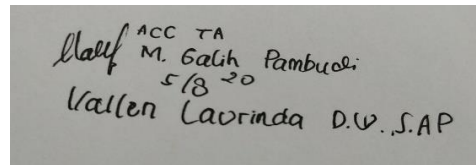 ACC TA
M. Galih Pambudi
5/8 20
Vallen Laurinda D.W., S.AP